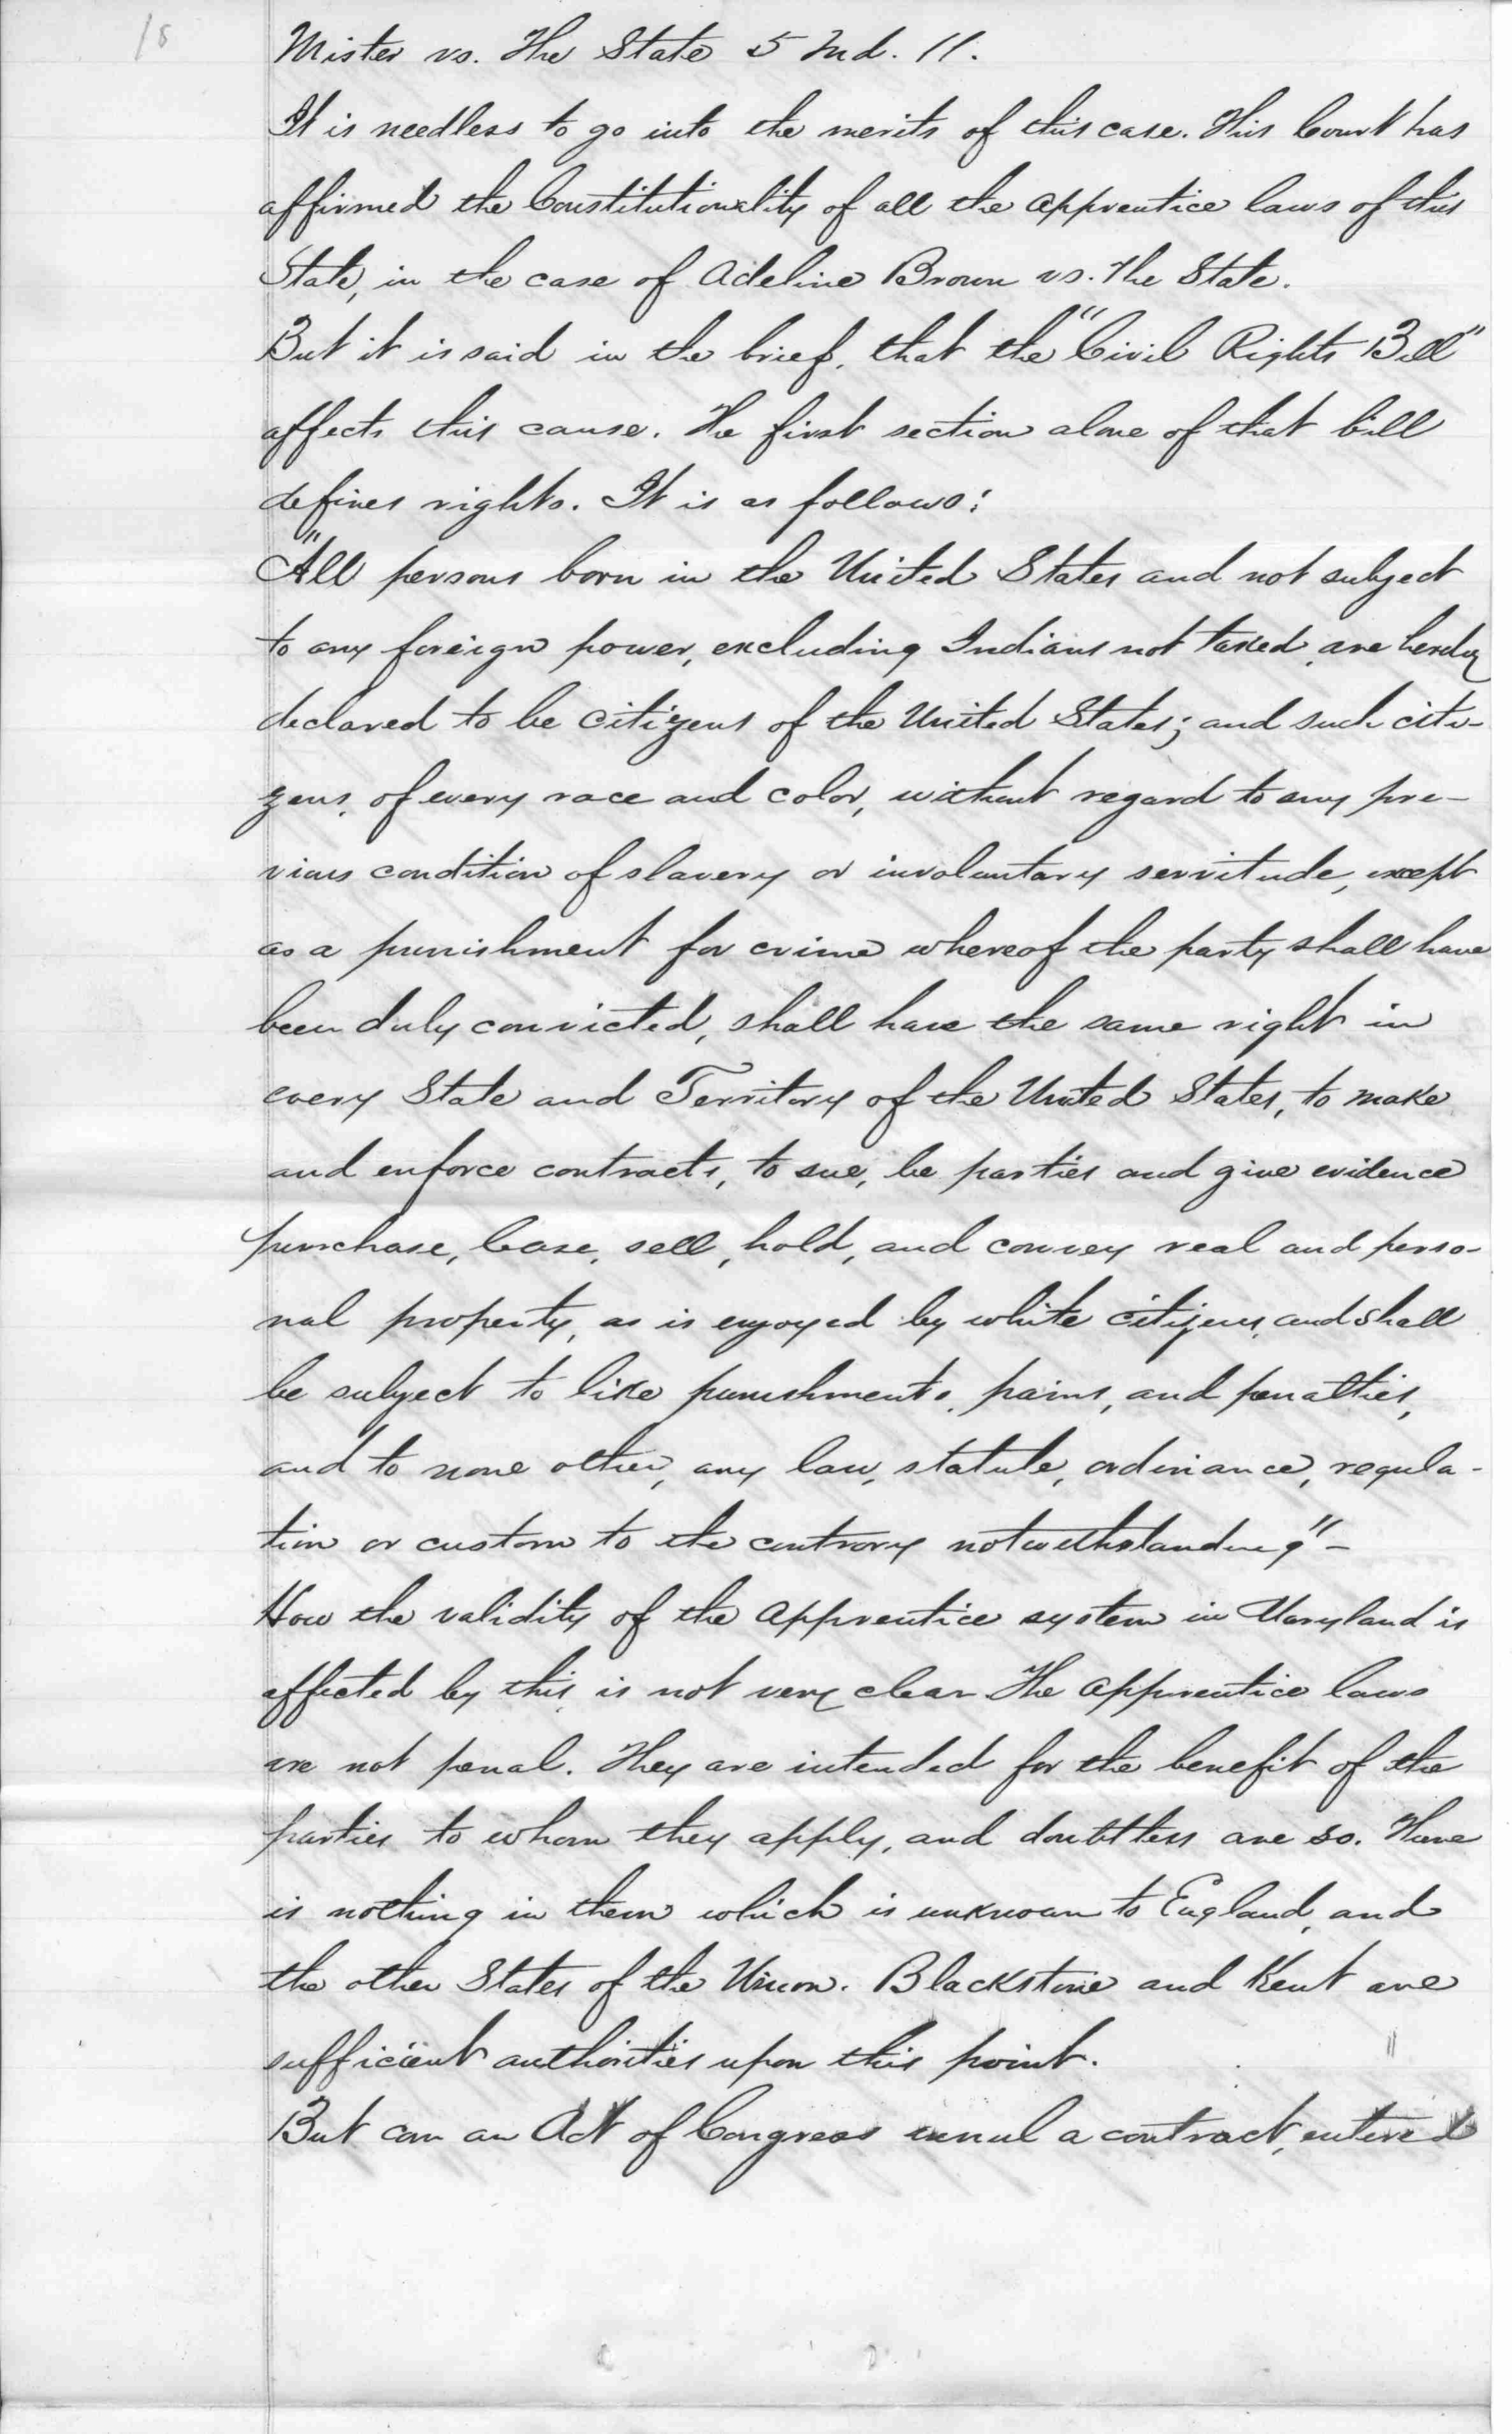 18
Mister vs. The State 5 Md. 11.
It is needless to go into the merits of this case. This Court has
affirmed the Constitutionality of all the apprentice laws of this
State, in the case of Adeline Brown vs. The State.
But it is said in the brief, that the "Civil Rights Bill"
affects this cause. The first section alone of that bill
defines rights. It is as follows:
"All persons born in the United States and not subject
to any foreign power, excluding Indians not taxed, are hereby
declared to be citizens of the United States; and such citi-
zens, of every race and color, without regard to any pre-
vious condition of slavery or involuntary servitude, except
as a punishment for crime whereof the party shall have
been duly convicted, shall have the same right in
every State and Territory of the United States, to make
and enforce contracts, to sue, be parties and give evidence
purchase, lease, sell, hold, and convey real and perso-
nal property, as is enjoyed by white citizens, and shall
be subject to like punishments, pains, and penalties,
and to none other, any law, statute, ordinance, regula-
tion or custom to the contrary notwithstanding"-
How the validity of the apprentice system in Maryland is
affected by this, is not very clear The apprentice laws
are not penal. They are intended for the benefit of the
parties to whom they apply, and doubtless are so. There
is nothing in them which is unknown to England, and
the other States of the Union. Blackstone and Kent are
sufficient authorities upon this point.
But can an Act of Congress annul a contract, entered